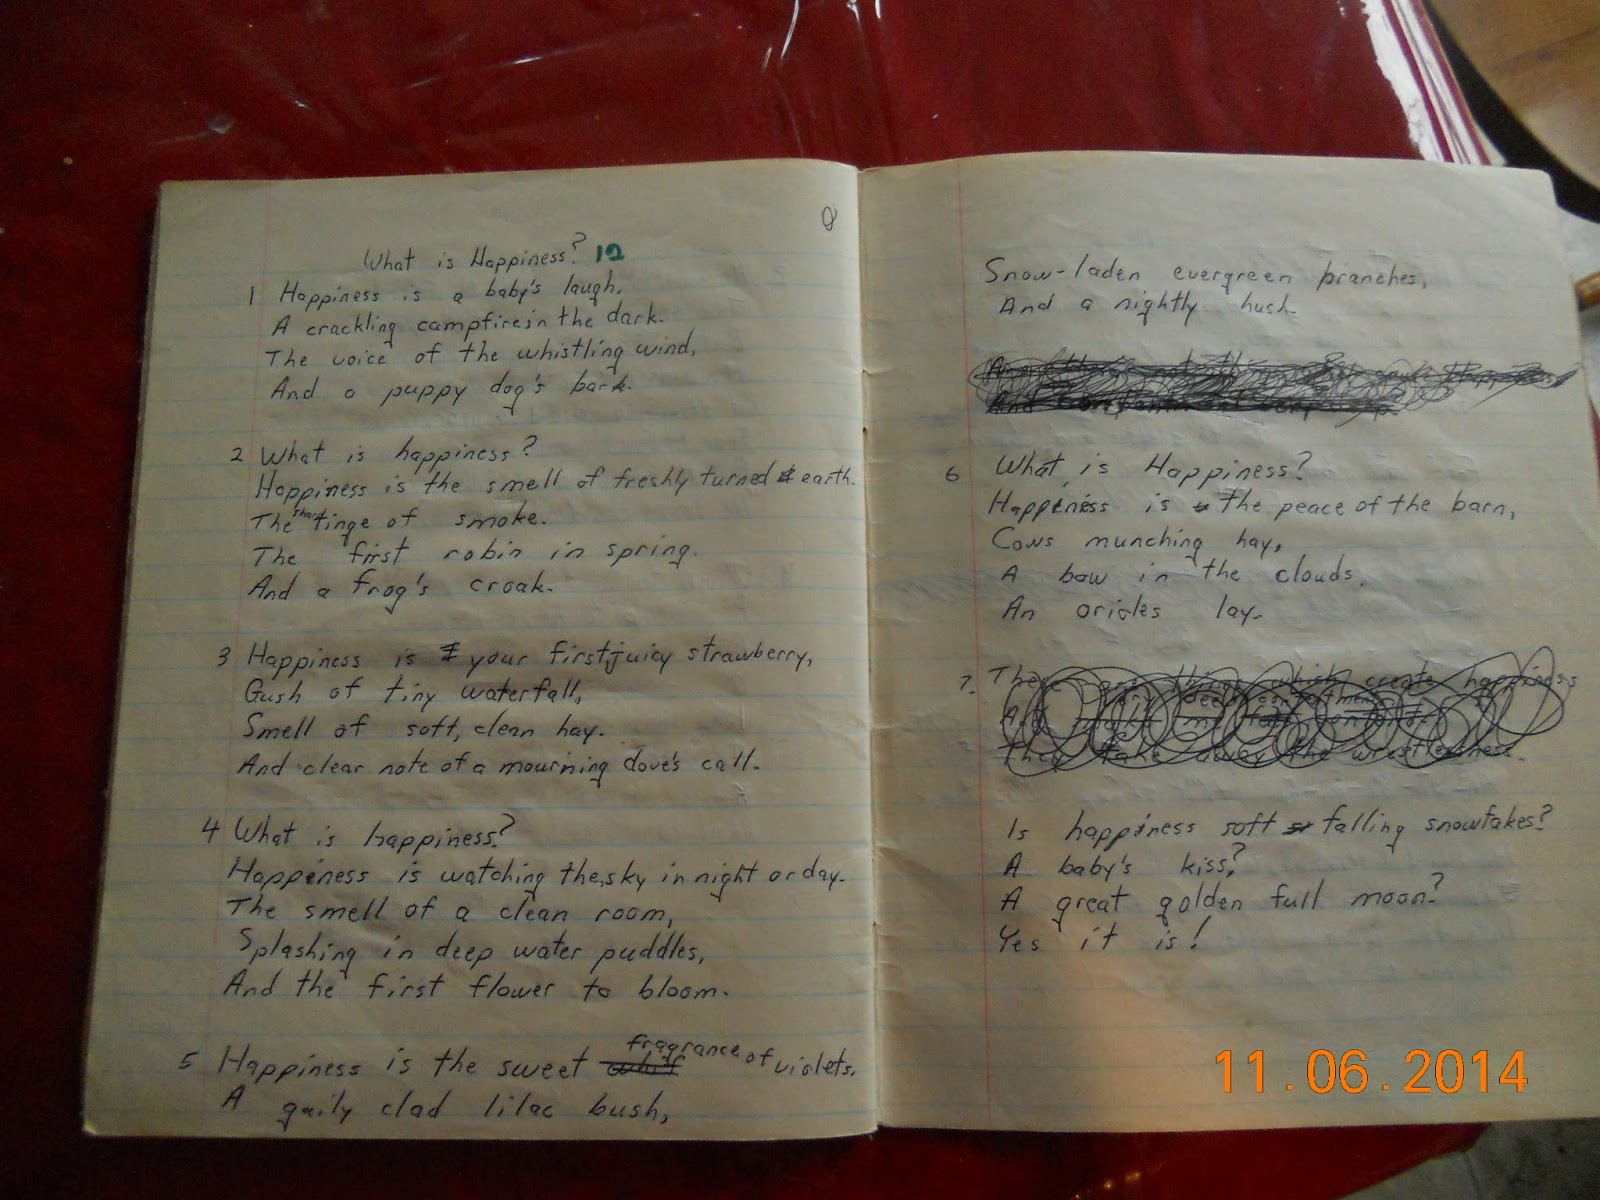 What is Happiness? 12
1 Happiness is a baby's laugh.
A crackling campfire in the dark.
The voice of the whistling wind,
And a puppy dog's bark.
2 What is happiness?
Happiness is the smell of freshly turned earth.
The sharp tinge of smoke.
The first robin in spring.
And a frog's croak.
3 Happiness is your first, juicy strawberry,
Gush of tiny waterfall,
Smell of soft, clean hay.
And clear note of a mourning dove's call.
4 What is happiness?
Happiness is watching the sky in night or day.
The smell of a clean room,
Splashing in deep water puddles,
And the first flower to bloom.
5 Happiness is the sweet fragrance of violets.
A gaily clad lilac bush,
Snow-laden evergreen branches,
And a nightly hush.
6 What is Happiness?
Happiness is the peace of the barn,
Cows munching hay,
A bow in the clouds.
An orioles lay.
7. There are things which create happiness
They take away the
Is happiness soft falling snowfakes?
A baby's kiss?
A great golden full moon?
Yes it is!
11.06.2014